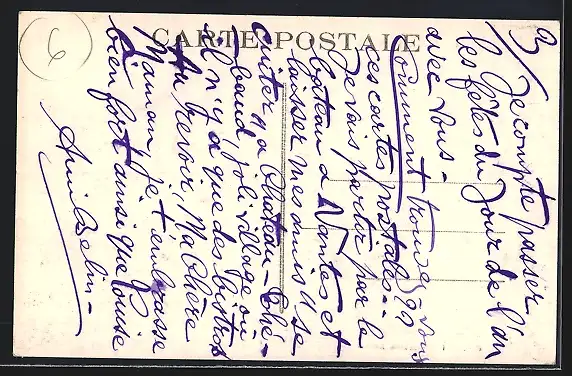 CARTE POSTALE
6
3/ Je compte passer
les fêtes du Jour de l'an
avec vous -
Comment trouvez-vous
ces cartes postales ??
Je vais partir par le
bateau à Nantes et
laisser mes amis se
cuiter à Château-Thé-
baud, joli village où
il n'y a que des bistros
Au revoir, Ma Chère
Maman, je t'embrasse
bien fort ainsi que Louise